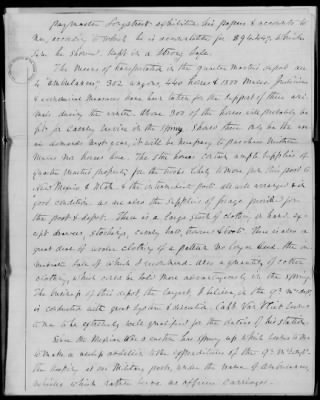 paymaster Longstreet exhibited his papers & accounts to
me, according to which he is accountable for $94,447, which
sum he showed kept in a strong safe.
The means of transportation in the quarter Masters depot are
6 "ambulances" 302 wagons 440 horses & 1800 mules. Judicious
& economical measures have been taken for the support of these ani-
mals during the winter. Above 300 of the horses will probably be
fit for Cavalry service in the spring. Should there only be the usu-
al demands next year, it will be necessary to purchase neither
mules nor horses here. The store houses contain ample supplies of
quarter masters property for the troops likely to move from this post to
New Mexico & Utah & the intermediate posts all well arranged & in
good condition, as are also the supplies of forage provided for
the post & depot. There is a large stock of clothing on hand, ex-
cept drawers, stockings, cavalry hats, trowsers & boots. There is also a
great deal of woolen clothing of a pattern no longer used the im-
mediate sale of which I recommend. Also a quantity of cotton
clothing, which could be sold more advantageously in the spring.
The business of this depot the largest, I believe, in the Qr. Mr. dept.
is conducted with great system & discretion. Capt. Van Vliet seems
to me to be extremely well qualified for the duties of his station.
Since the Mexican War a custom has sprung up which seems to me
to make a useless addition to the expenditures of the Qr. Mr. dept.
the keeping at our Military posts, under the name of ambulances,
vehicles which rather serve as officers carriages.